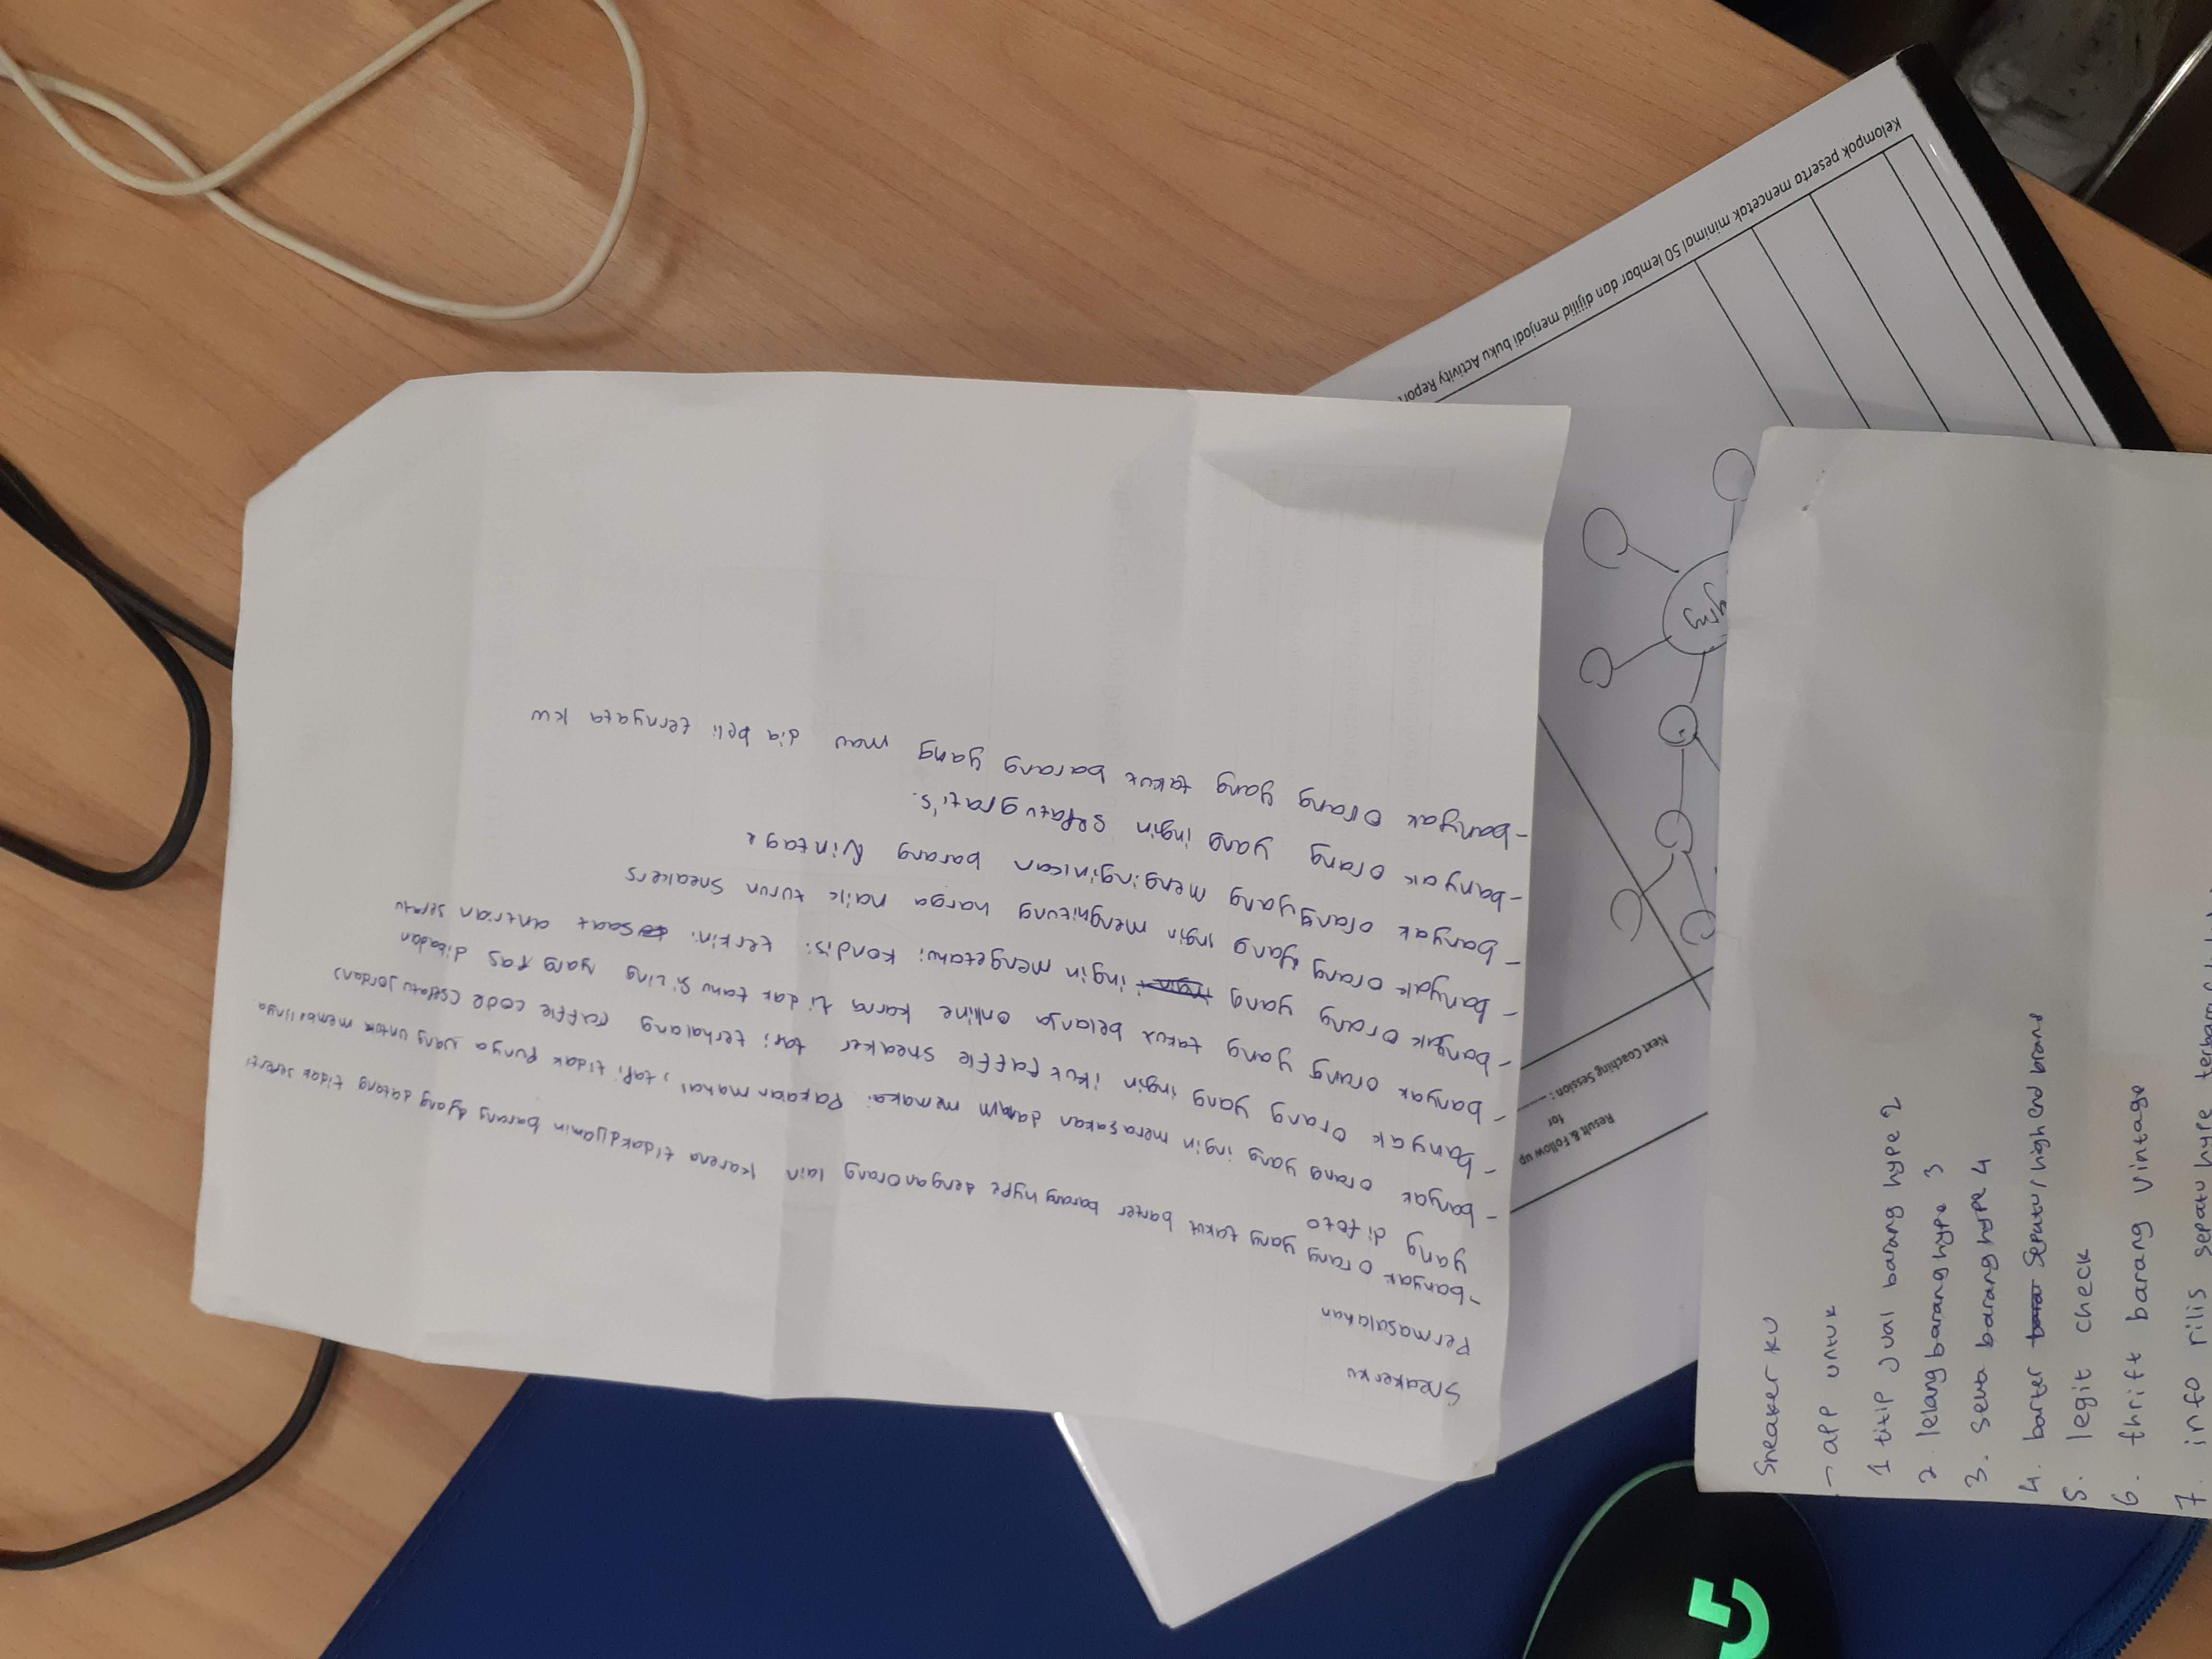 Sneakerku
Permasalahan
- banyak orang yang takut barter barang hype dengan orang lain karena tidak dijamin barang yang datang tidak seperti
yang di foto
- banyak orang yang ingin merasakan dalam memakai Pakaian mahal, tapi tidak punya uang untuk membelinya
- banyak orang yang ingin ikut raffle sneaker tapi terhalang raffle code (sepatu Jordans)
- banyak orang yang takut belanja online karna tidak tahu sizing yang pas dibadan
- banyak orang yang ingin mengetahui kondisi terkini saat antrian sepatu
- banyak orang yang ingin menghitung harga naik turun sneakers
- banyak orang yang menginginkan barang vintage
- banyak orang yang ingin sepatu gratis.
- banyak orang yang takut barang yang mau dia beli ternyata kw
Result & Follow up
for
Next Coaching Session:
Kelompok peserta mencetak minimal 50 lembar dan dijilid menjadi buku Activity Report
Sneaker ku
- app untuk
1 titip jual barang hype 2
2 lelang barang hype 3
3. sewa barang hype 4
4. barter sepatu/high end brand
5. legit check
6. thrift barang vintage
7. info rilis sepatu hype